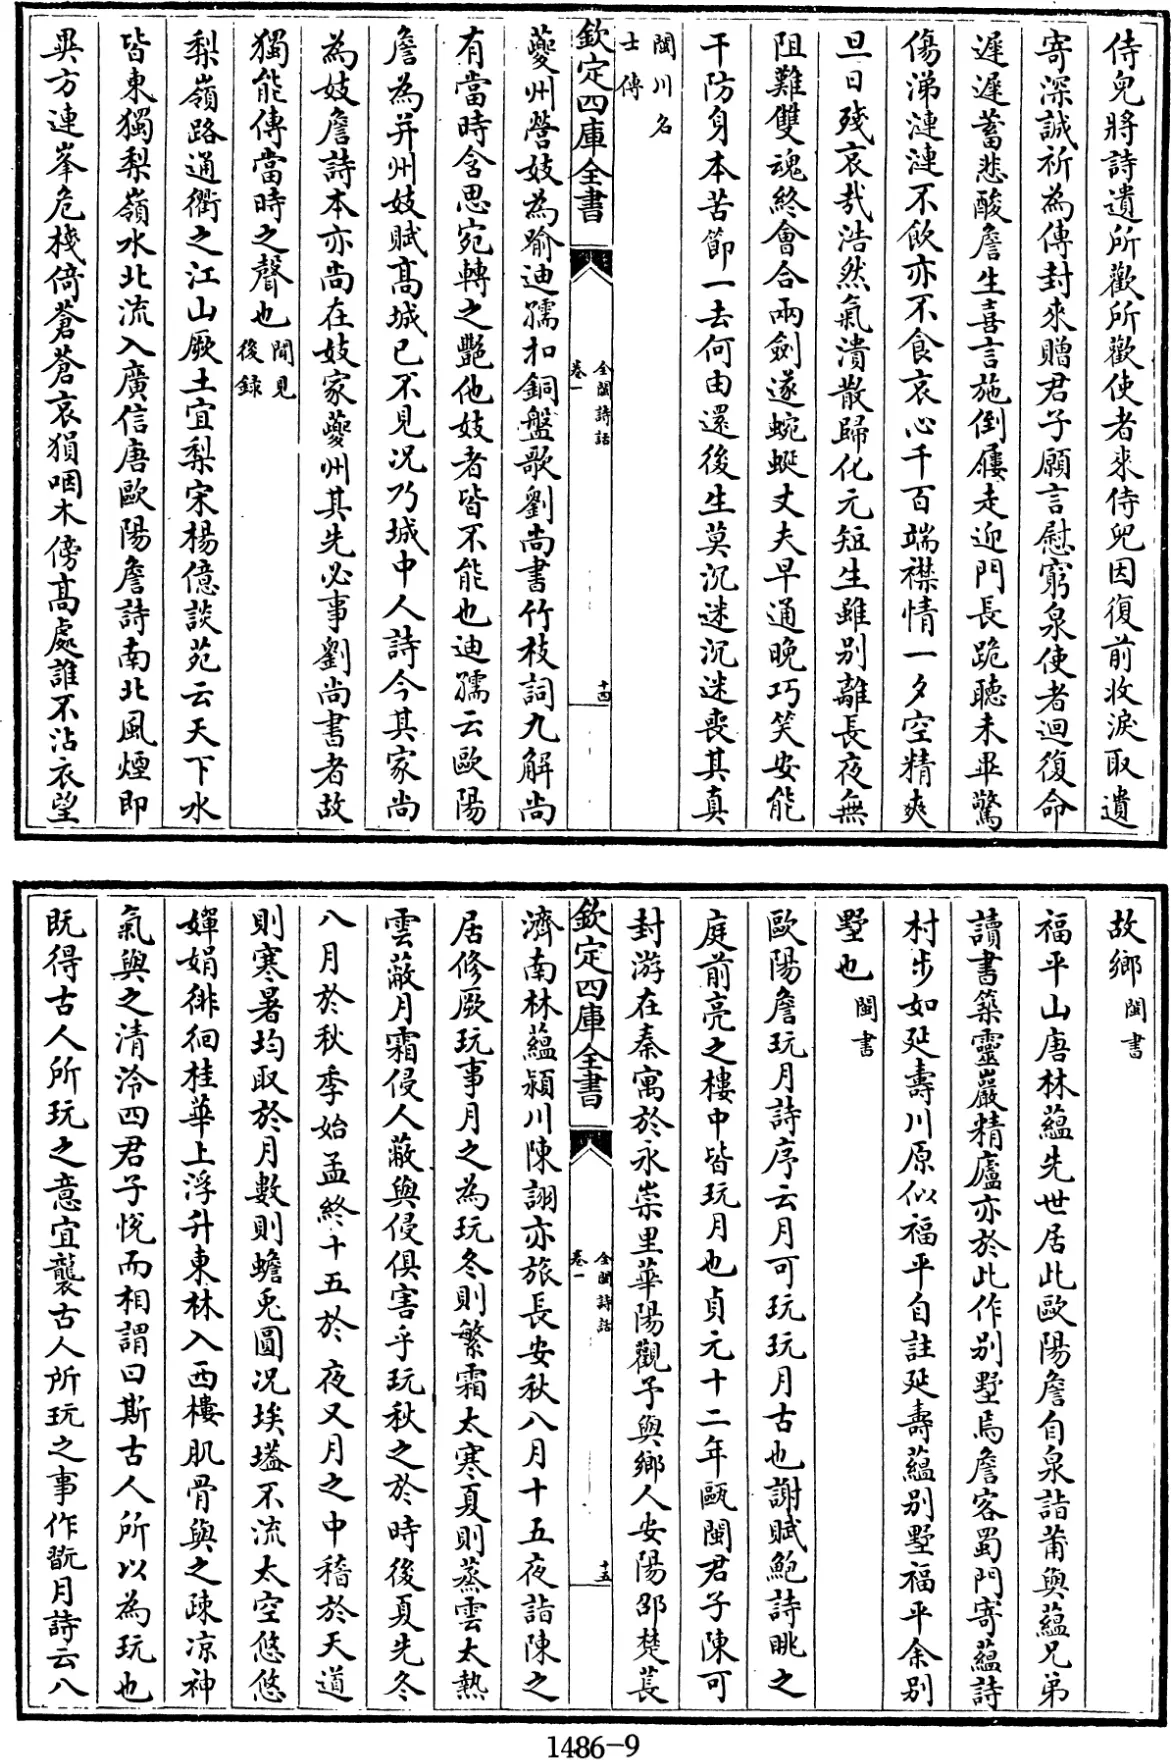 侍兒將詩遺所歡所歡使者來侍兒因復前收淚取遺
寄深誠祈為傳封來贈君子願言慰窮泉使者迴復命
遲遲蓄悲酸詹生喜言施倒屨走迎門長跪聽未畢驚
傷涕漣漣不飲亦不食哀心千百端襟情一夕空精爽
旦日殘哀哉浩然氣潰散歸化元短生雖别離長夜無
阻難雙魂終會合兩劍遂蜿蜒丈夫早通晚巧笑安能
干防身本苦節一去何由還後生莫沉迷沉迷喪其真
閩川名
士傳
欽定四庫全書
全閩詩話
卷一
十四
夔州營妓為喻迪孺扣銅盤歌劉尚書竹枝詞九解尚
有當時含思宛轉之艷他妓者皆不能也迪孺云歐陽
詹為并州妓賦高城已不見况乃城中人詩今其家尚
為妓詹詩本亦尚在妓家夔州其先必事劉尚書者故
獨能傳當時之聲也聞見
後録
梨嶺路通衢之江山厥土宜梨宋楊億談苑云天下水
皆東獨梨嶺水北流入廣信唐歐陽詹詩南北風煙即
異方連峯危棧倚蒼蒼哀猿咽木傍高處誰不沾衣望
故鄉閩書
福平山唐林藴先世居此歐陽詹自泉詣莆與藴兄弟
讀書築靈巖精廬亦於此作别墅焉詹客蜀門寄藴詩
村步如延壽川原似福平自註延壽藴别墅福平余别
墅也閩書
歐陽詹玩月詩序云月可玩玩月古也謝賦鮑詩眺之
庭前亮之樓中皆玩月也貞元十二年甌閩君子陳可
封游在秦寓於永崇里華陽觀予與鄉人安陽邵楚萇
欽定四庫全書
全閩詩話
卷一
十五
濟南林藴潁川陳詡亦旅長安秋八月十五夜詣陳之
居修厥玩事月之為玩冬則繁霜太寒夏則蒸雲太熱
雲蔽月霜侵人蔽與侵俱害乎玩秋之於時後夏先冬
八月於秋季始孟終十五於夜又月之中稽於天道
則寒暑均取於月數則蟾兎圓况埃壒不流太空悠悠
嬋娟徘徊桂華上浮升東林入西樓肌骨與之疎凉神
氣與之清泠四君子恱而相謂曰斯古人所以為玩也
既得古人所玩之意宜襲古人所玩之事作翫月詩云八
1486-9